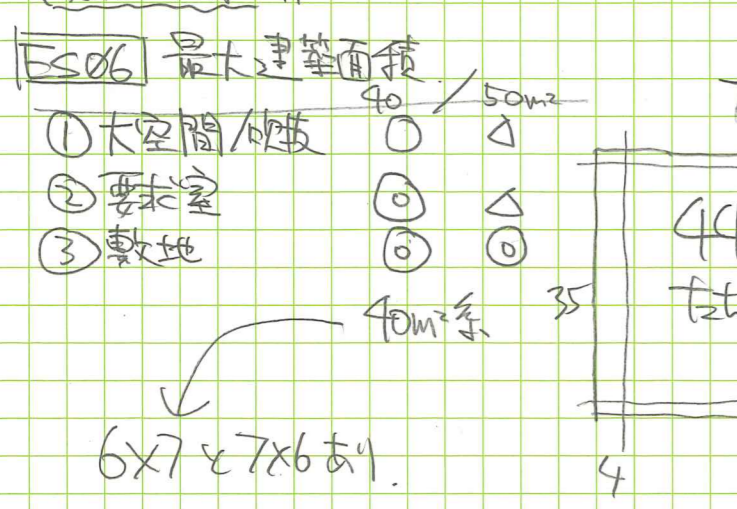 ES06 最大建築面積
40 / 50m²
① 大空間/吹抜 ○ △
② 要求室 ◎ △
③ 敷地 ◎ ◎
40m²系
6×7と7×6あり.
35
4